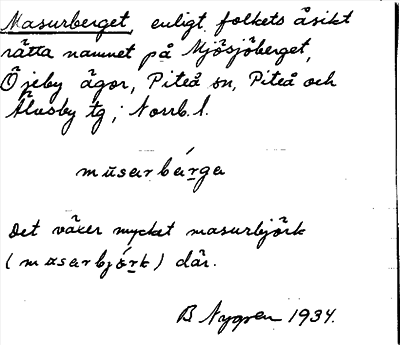 Masurberget, enligt folkets åsikt
rätta namnet på Mjösjöberget,
Öjeby ägor, Piteå sn, Piteå och
Älvsby tg, Norrb. l.
musarbárga
Det växer mycket masurbjörk
(musarbjórk) där.
B Nygren 1934.